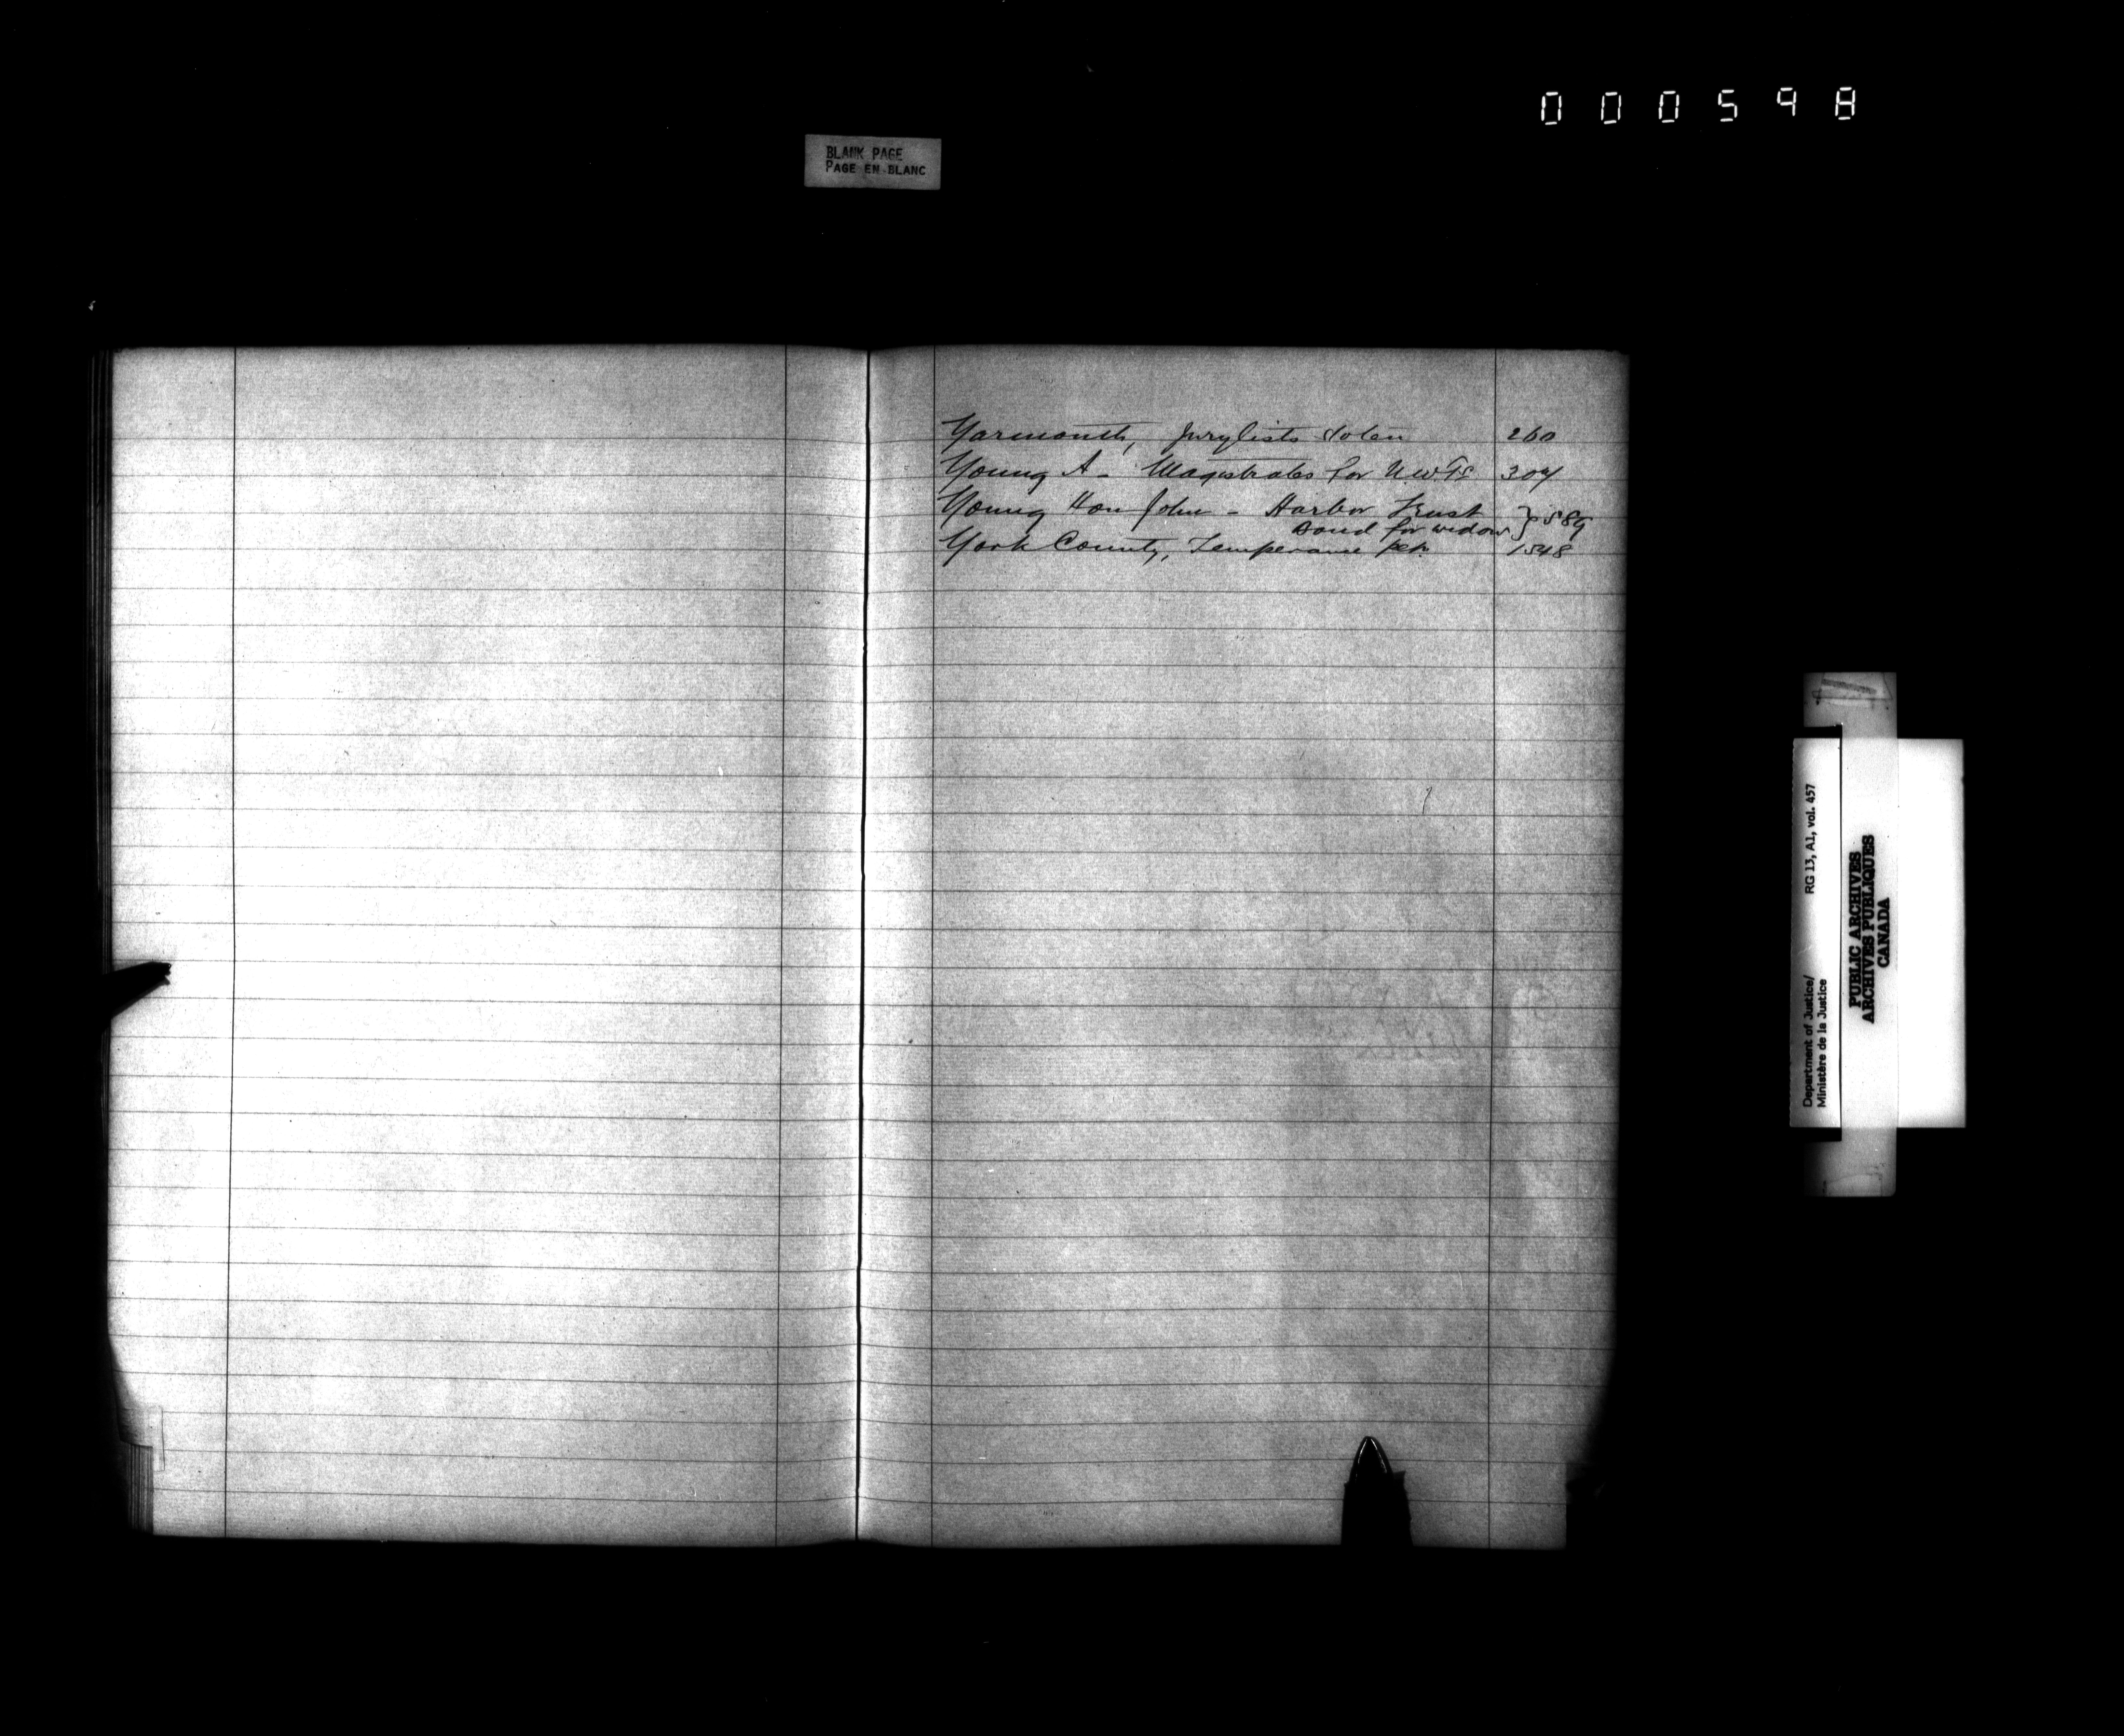 000598
BLANK PAGE
PAGE EN BLANC
Yarmouth, Jurylists stolen 260
Young A - Magistrates for N.W.Ts 304
Young Hon John - Harbor Trust
Bond for widow } 589
York County, Temperance pet. 1548
Department of Justice/ RG 13, A1, vol. 457
Ministère de la Justice
PUBLIC ARCHIVES
ARCHIVES PUBLIQUES
CANADA